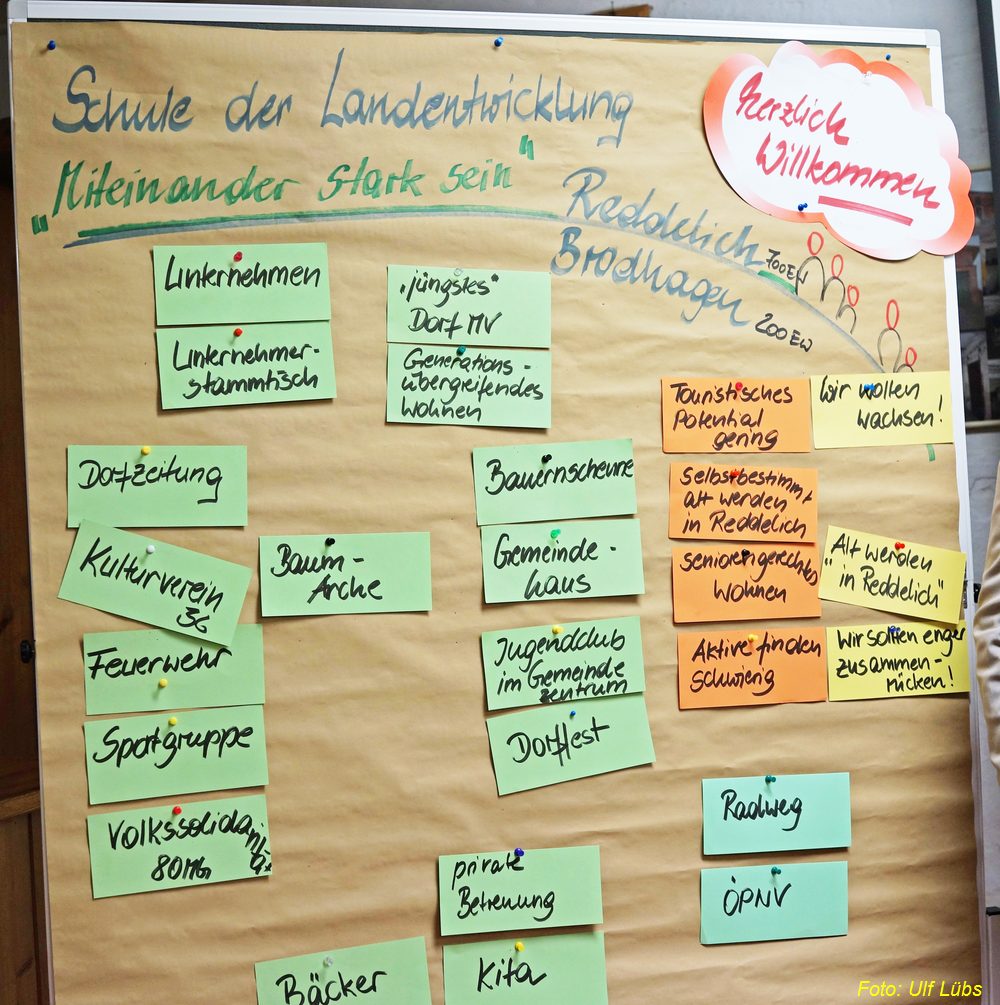 Schule der Landentwicklung
„Miteinander stark sein"
Herzlich
Willkommen
Reddelich 700 EW
Brodhagen 200 EW
Unternehmen
Unternehmer-
stammtisch
„jüngstes"
Dorf MV
Generations-
übergreifendes
Wohnen
Touristisches
Potential
gering
Wir wollen
wachsen!
Dorfzeitung
Kulturverein
36
Feuerwehr
Sportgruppe
Volkssolidarität
80 Mgl.
Baum-
Arche
Bauernscheune
Gemeinde-
haus
Jugendclub
im Gemeinde
zentrum
Dorffest
Selbstbestimmt
alt werden
in Reddelich
seniorengerechtes
Wohnen
„Alt werden
in Reddelich"
Aktive finden
schwierig
Wir sollten enger
zusammen-
rücken!
Radweg
ÖPNV
private
Betreuung
Kita
Bäcker
Foto: Ulf Lübs